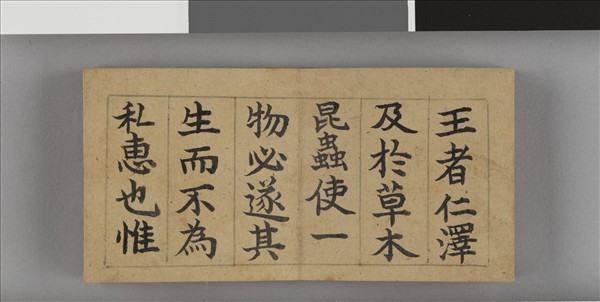 王者仁澤
及於草木
昆蟲使一
物必遂其
生而不為
私恵也惟